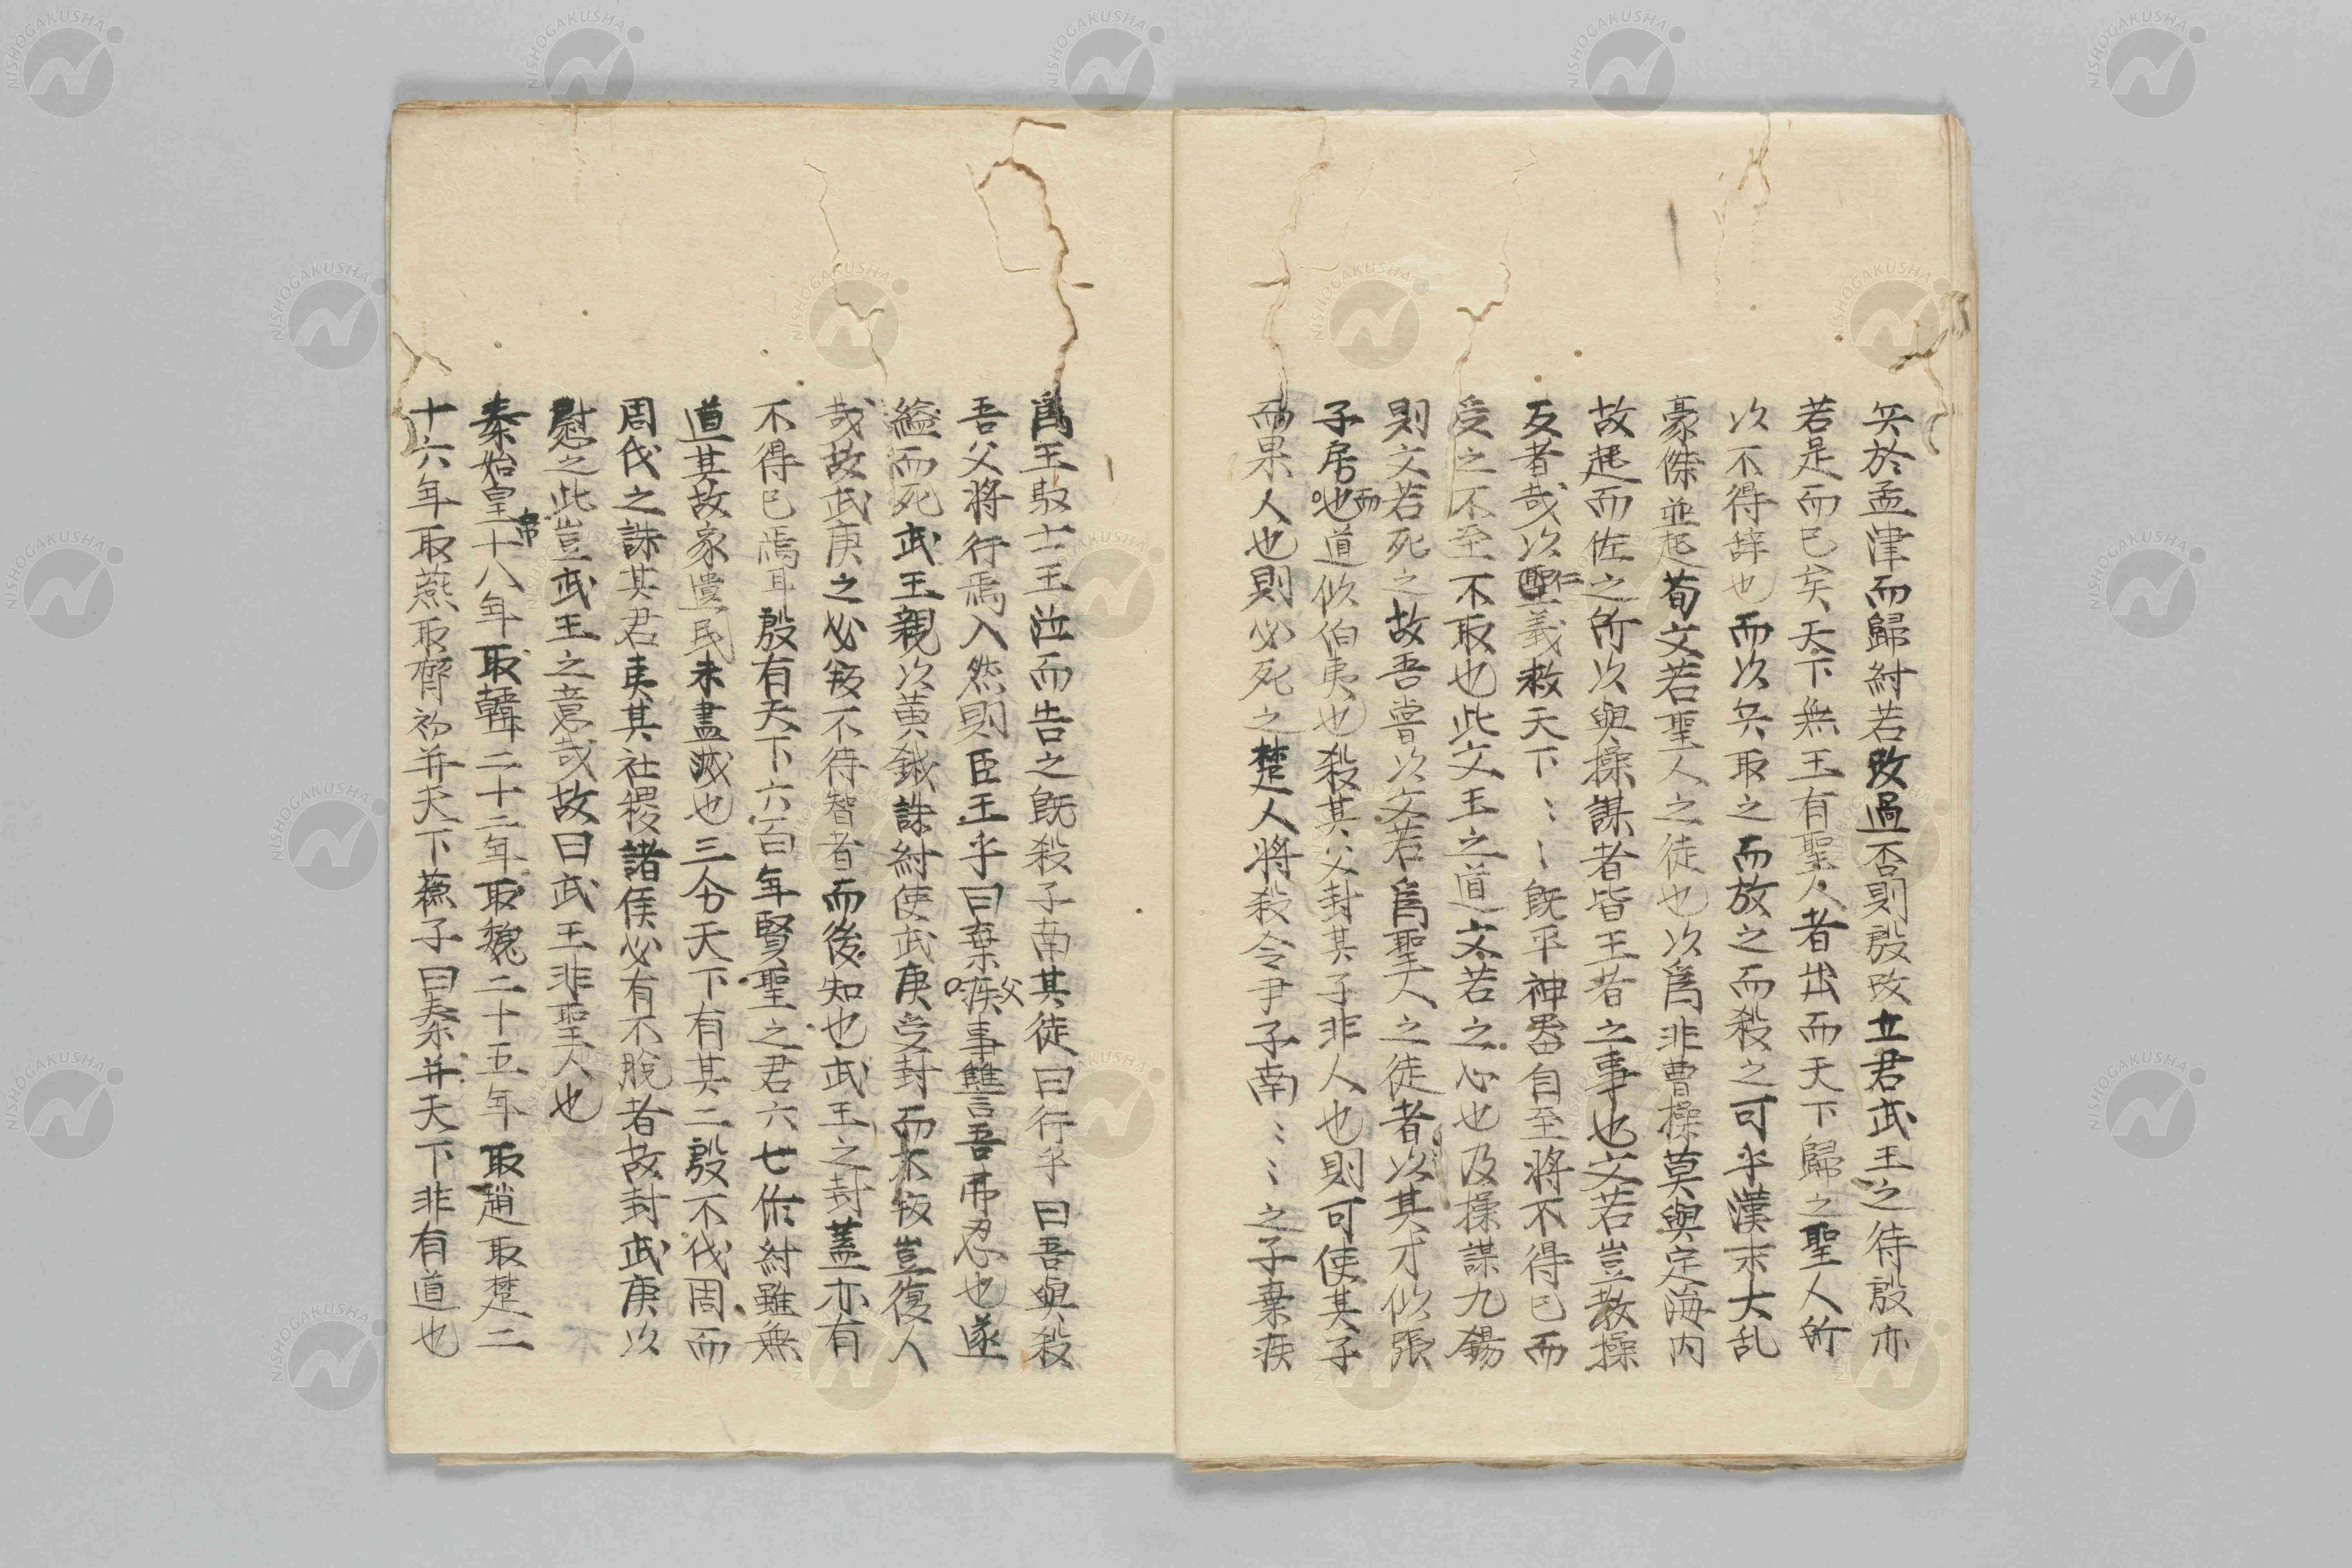 兵於孟津而歸紂若改過否則殷改立君武王之待殷亦
若是而已矣天下無王有聖人者出而天下歸之聖人所
以不得辞也而以兵取之而放之而殺之可乎漢末大乱
豪傑並起荀文若聖人之徒也以爲非曹操莫與定海内
故起而佐之所以與操謀者皆王者之事也文若豈教操
反者哉以仁義救天下〻〻〻既平神器自至將不得已而
受之不至不取也此文王之道文若之心也及操謀九錫
則文若死之故吾嘗以文若爲聖人之徒者以其才似張
子房而道似伯夷也殺其父封其子非人也則可使其子
而果人也則必死之楚人將殺令尹子南〻〻之子棄疾
爲王馭士王泣而告之既殺子南其徒曰行乎曰吾與殺
吾父將行焉入然則臣王乎曰棄父事讐吾弗忍也遂
縊而死武王親以黄鉞誅紂使武庚受封而不叛豈復人
哉故武庚之必叛不待智者而後知也武王之封蓋亦有
不得已焉耳殷有天下六百年賢聖之君六七作紂雖無
道其故家遺民未盡滅也三分天下有其二殷不伐周而
周伐之誅其君夷其社稷諸侯必有不脫者故封武庚以
慰之此豈武王之意哉故曰武王非聖人也
秦始皇帝十八年取韓二十二年取魏二十五年取趙取楚二
十六年取燕取齊初并天下蘓子曰秦并天下非有道也